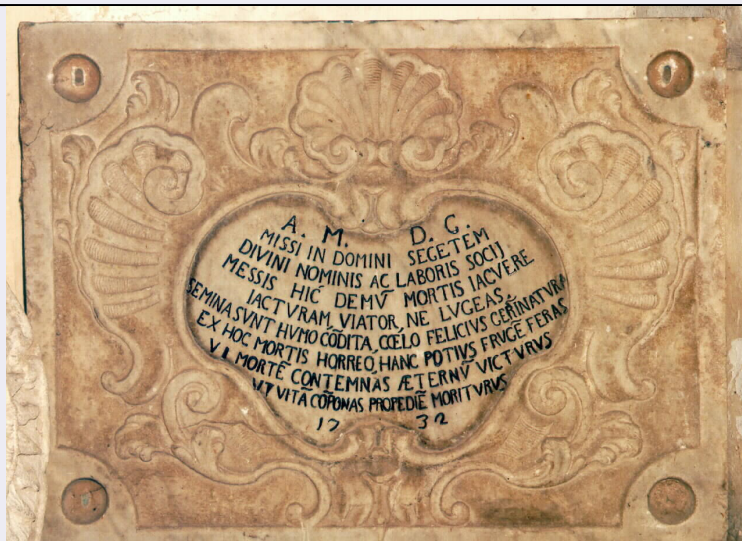 A. M. D. G.
MISSI IN DOMINI SEGETEM
DIVINI NOMINIS AC LABORIS SOCIJ
MESSIS HIC DEMV̄ MORTIS IACVERE
IACTVRAM, VIATOR, NE LVGEAS,
SEMINA SVNT HVMO CŌDITA, CŒLO FELICIVS GERM̄INATVRA
EX HOC MORTIS HORREO, HANC POTIVS FRVGĒ FERAS
VT MORTĒ CONTEMNAS ÆTERNV̄ VICTVRVS
VT VITĀ CŌPONAS PROPEDIĒ MORITVRVS
17 32